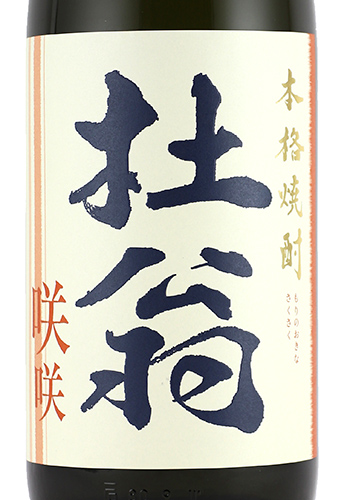 本格焼酎
もりのおきな
さくさく
杜翁
咲咲